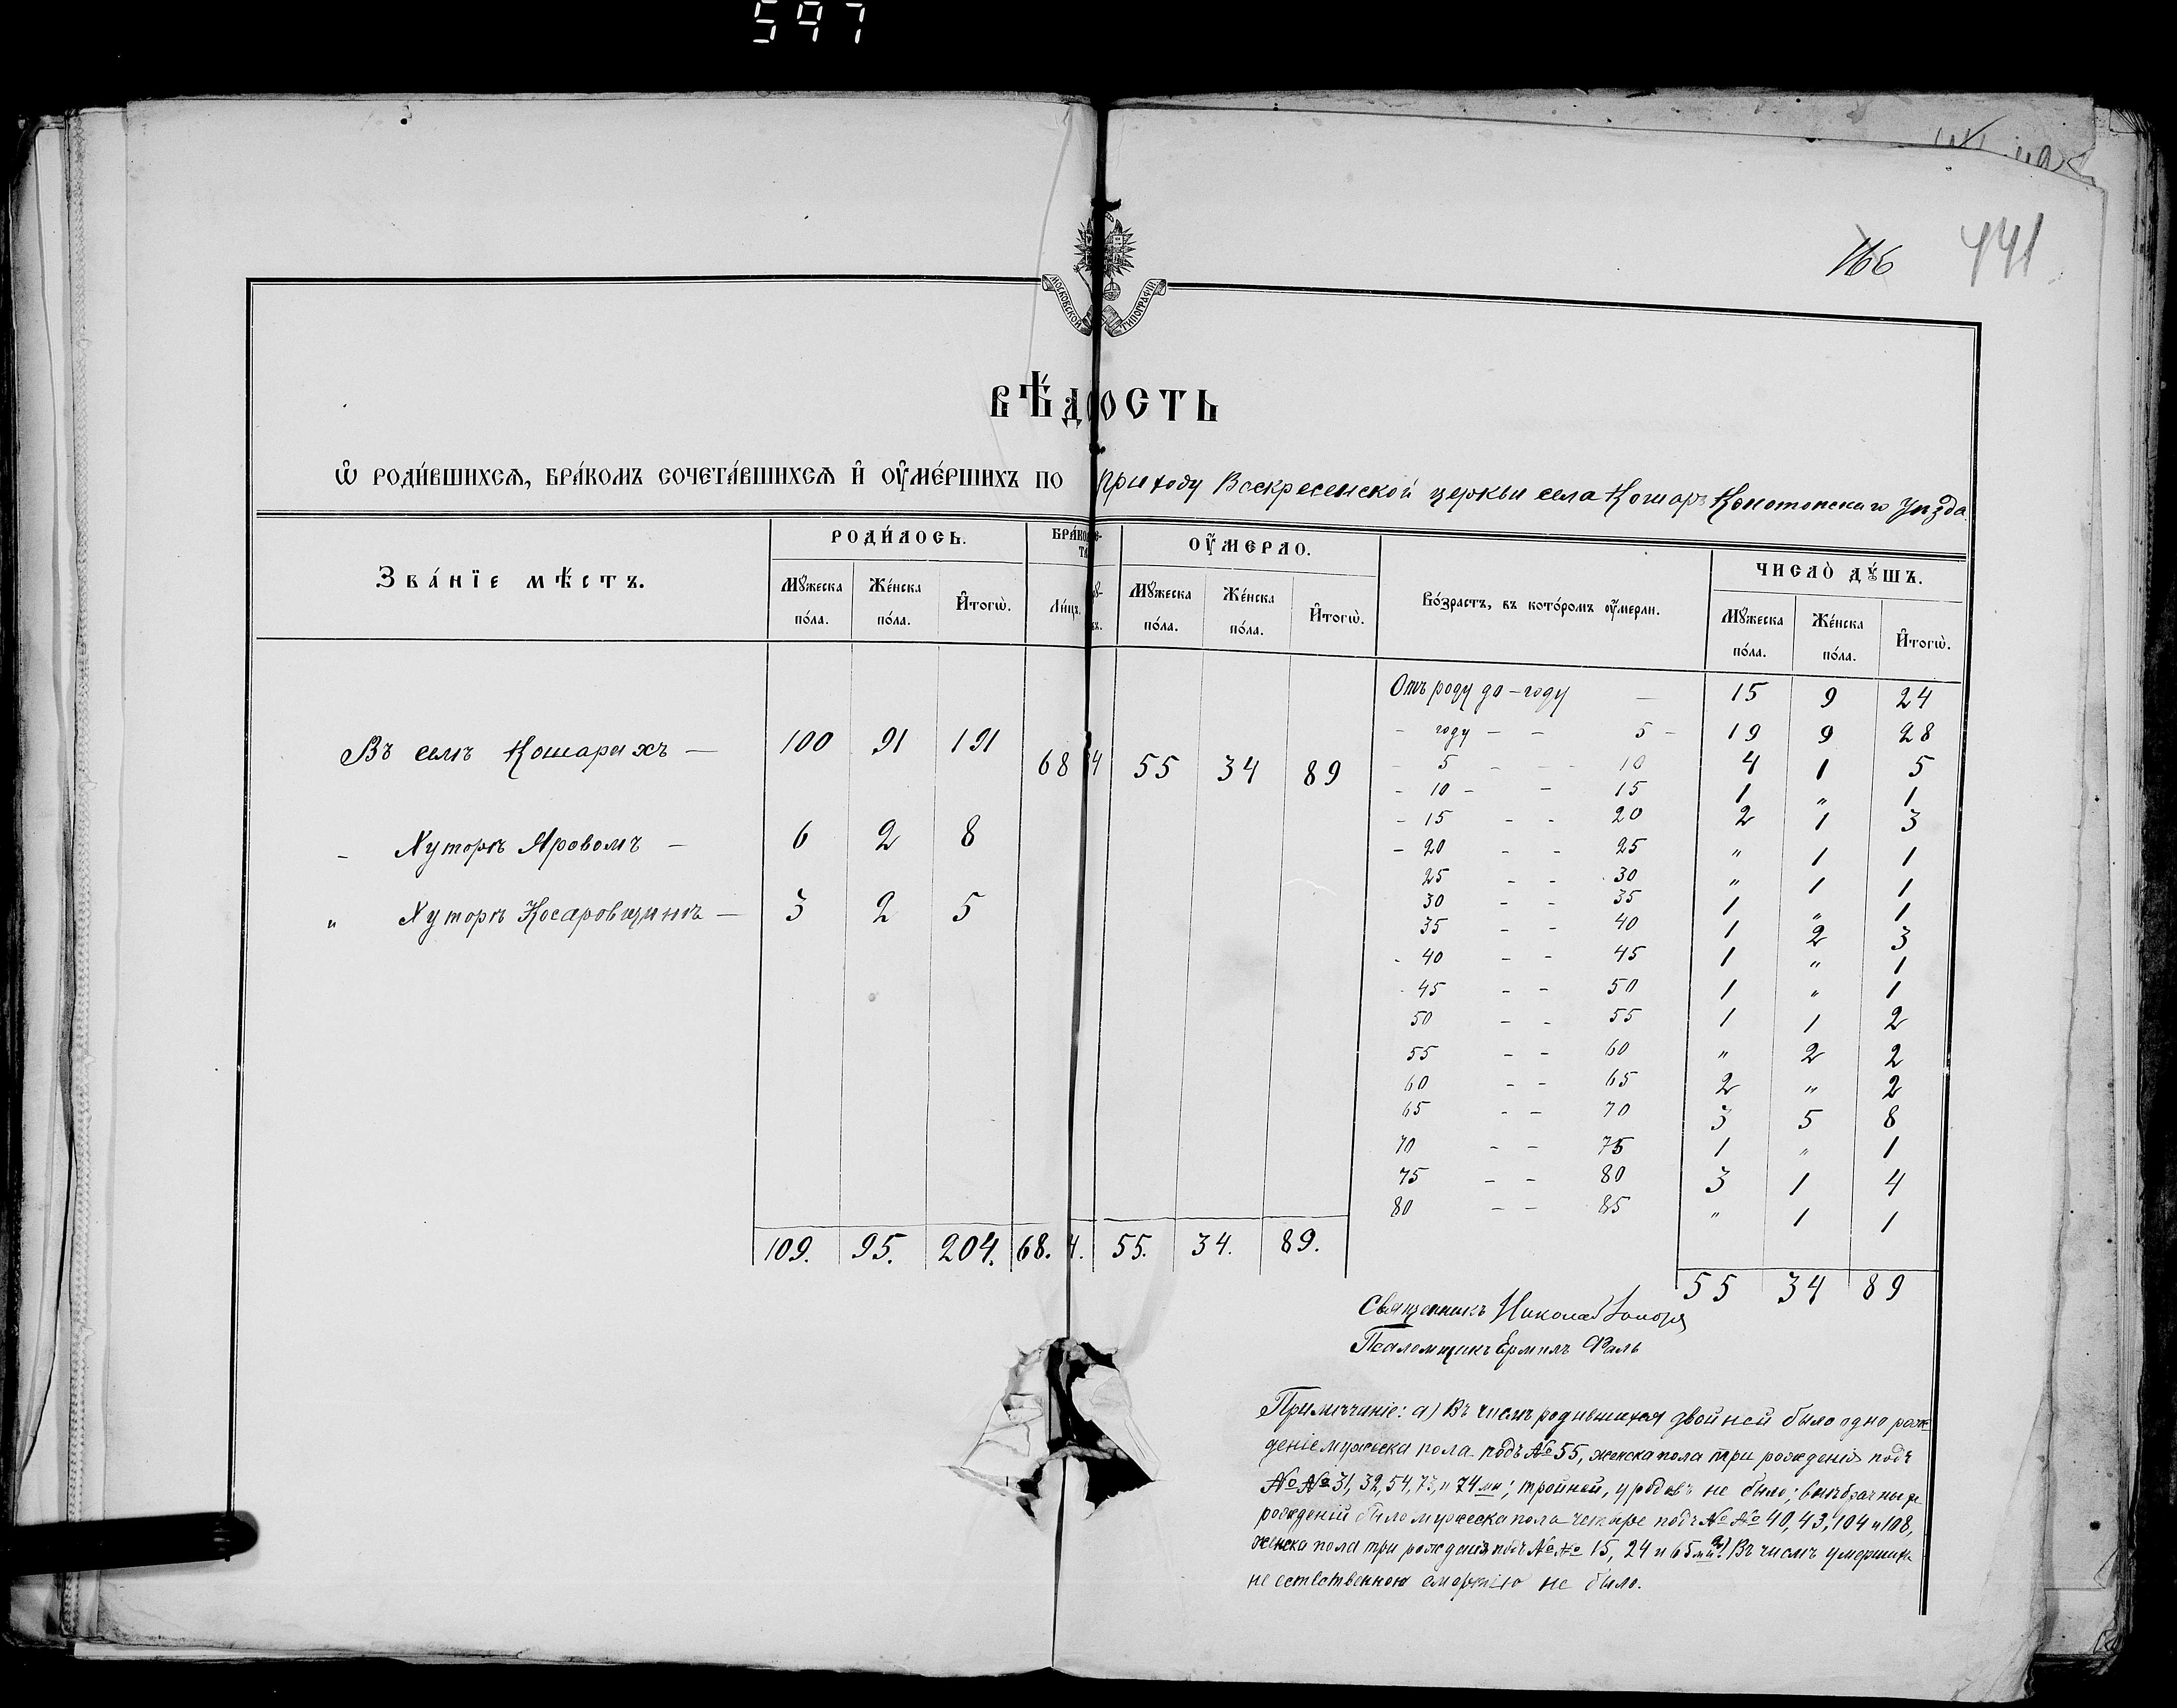 597
166 441
МОСКОВСКОЙ ТИПОГРАФІИ
ВѢ́ДОСТЬ
Ѡ҆ РОДИ́ВШИХСѦ, БРА́КОМЪ СОЧЕТА́ВШИХСѦ И҆ ОУ҆МЕ́РШИХЪ ПО приходу Воскресенской церкви села Кошаръ Конотопскаго Уѣзда
Зва́нїе мѣ́стъ. РОДИ́ЛОСЬ. ОУ҆́МЕРЛО. Во́зрастъ, въ кото́ромъ оу҆́мерли. ЧИСЛО̀ ДꙊ́ШЪ.
Мꙋ́жеска по́ла. Же́нска по́ла. И҆тогѡ̀. Ли́цъ. Мꙋ́жеска по́ла. Же́нска по́ла. И҆тогѡ̀. Мꙋ́жеска по́ла. Же́нска по́ла. И҆тогѡ̀.
Отъ роду до – году — 15 9 24
- году - - 5 - 19 9 28
Въ селѣ Кошарахъ — 100 91 191 68 34 55 34 89
5 - - 10 4 1 5
- 10 - - 15 1 " 1
- 15 - - 20 2 1 3
- Хуторѣ Яровомъ - 6 2 8
- 20 - - 25 " 1 1
25 - - 30 " 1 1
30 - - 35 1 " 1
" Хуторѣ Косаровщинѣ — 3 2 5
35 - - 40 1 2 3
- 40 - - 45 1 " 1
- 45 - - 50 1 " 1
50 - - 55 1 1 2
55 - - 60 " 2 2
60 - - 65 2 " 2
65 - - 70 3 5 8
70 - - 75 1 " 1
75 - - 80 3 1 4
80 - - 85 " 1 1
109. 95. 204. 68. 4. 55. 34. 89.
55 34 89
Священникъ Николай
Псаломщикъ Ермилъ Фаль
Примѣчаніе: а) Въ числѣ родившихся двойней было одно рож-
деніе мужеска пола подъ № 55, женска пола три рожденія подъ
№ № 31, 32, 54, 73, и 74 ми; тройней, уродовъ не было; внѣбрачныхъ
рожденій было мужеска пола четыре подъ № № 40, 43, 104 и 108,
женска пола три рожденія подъ № № 15, 24 и 65 ми. Въ числѣ умершихъ
не естественною смертію не было.